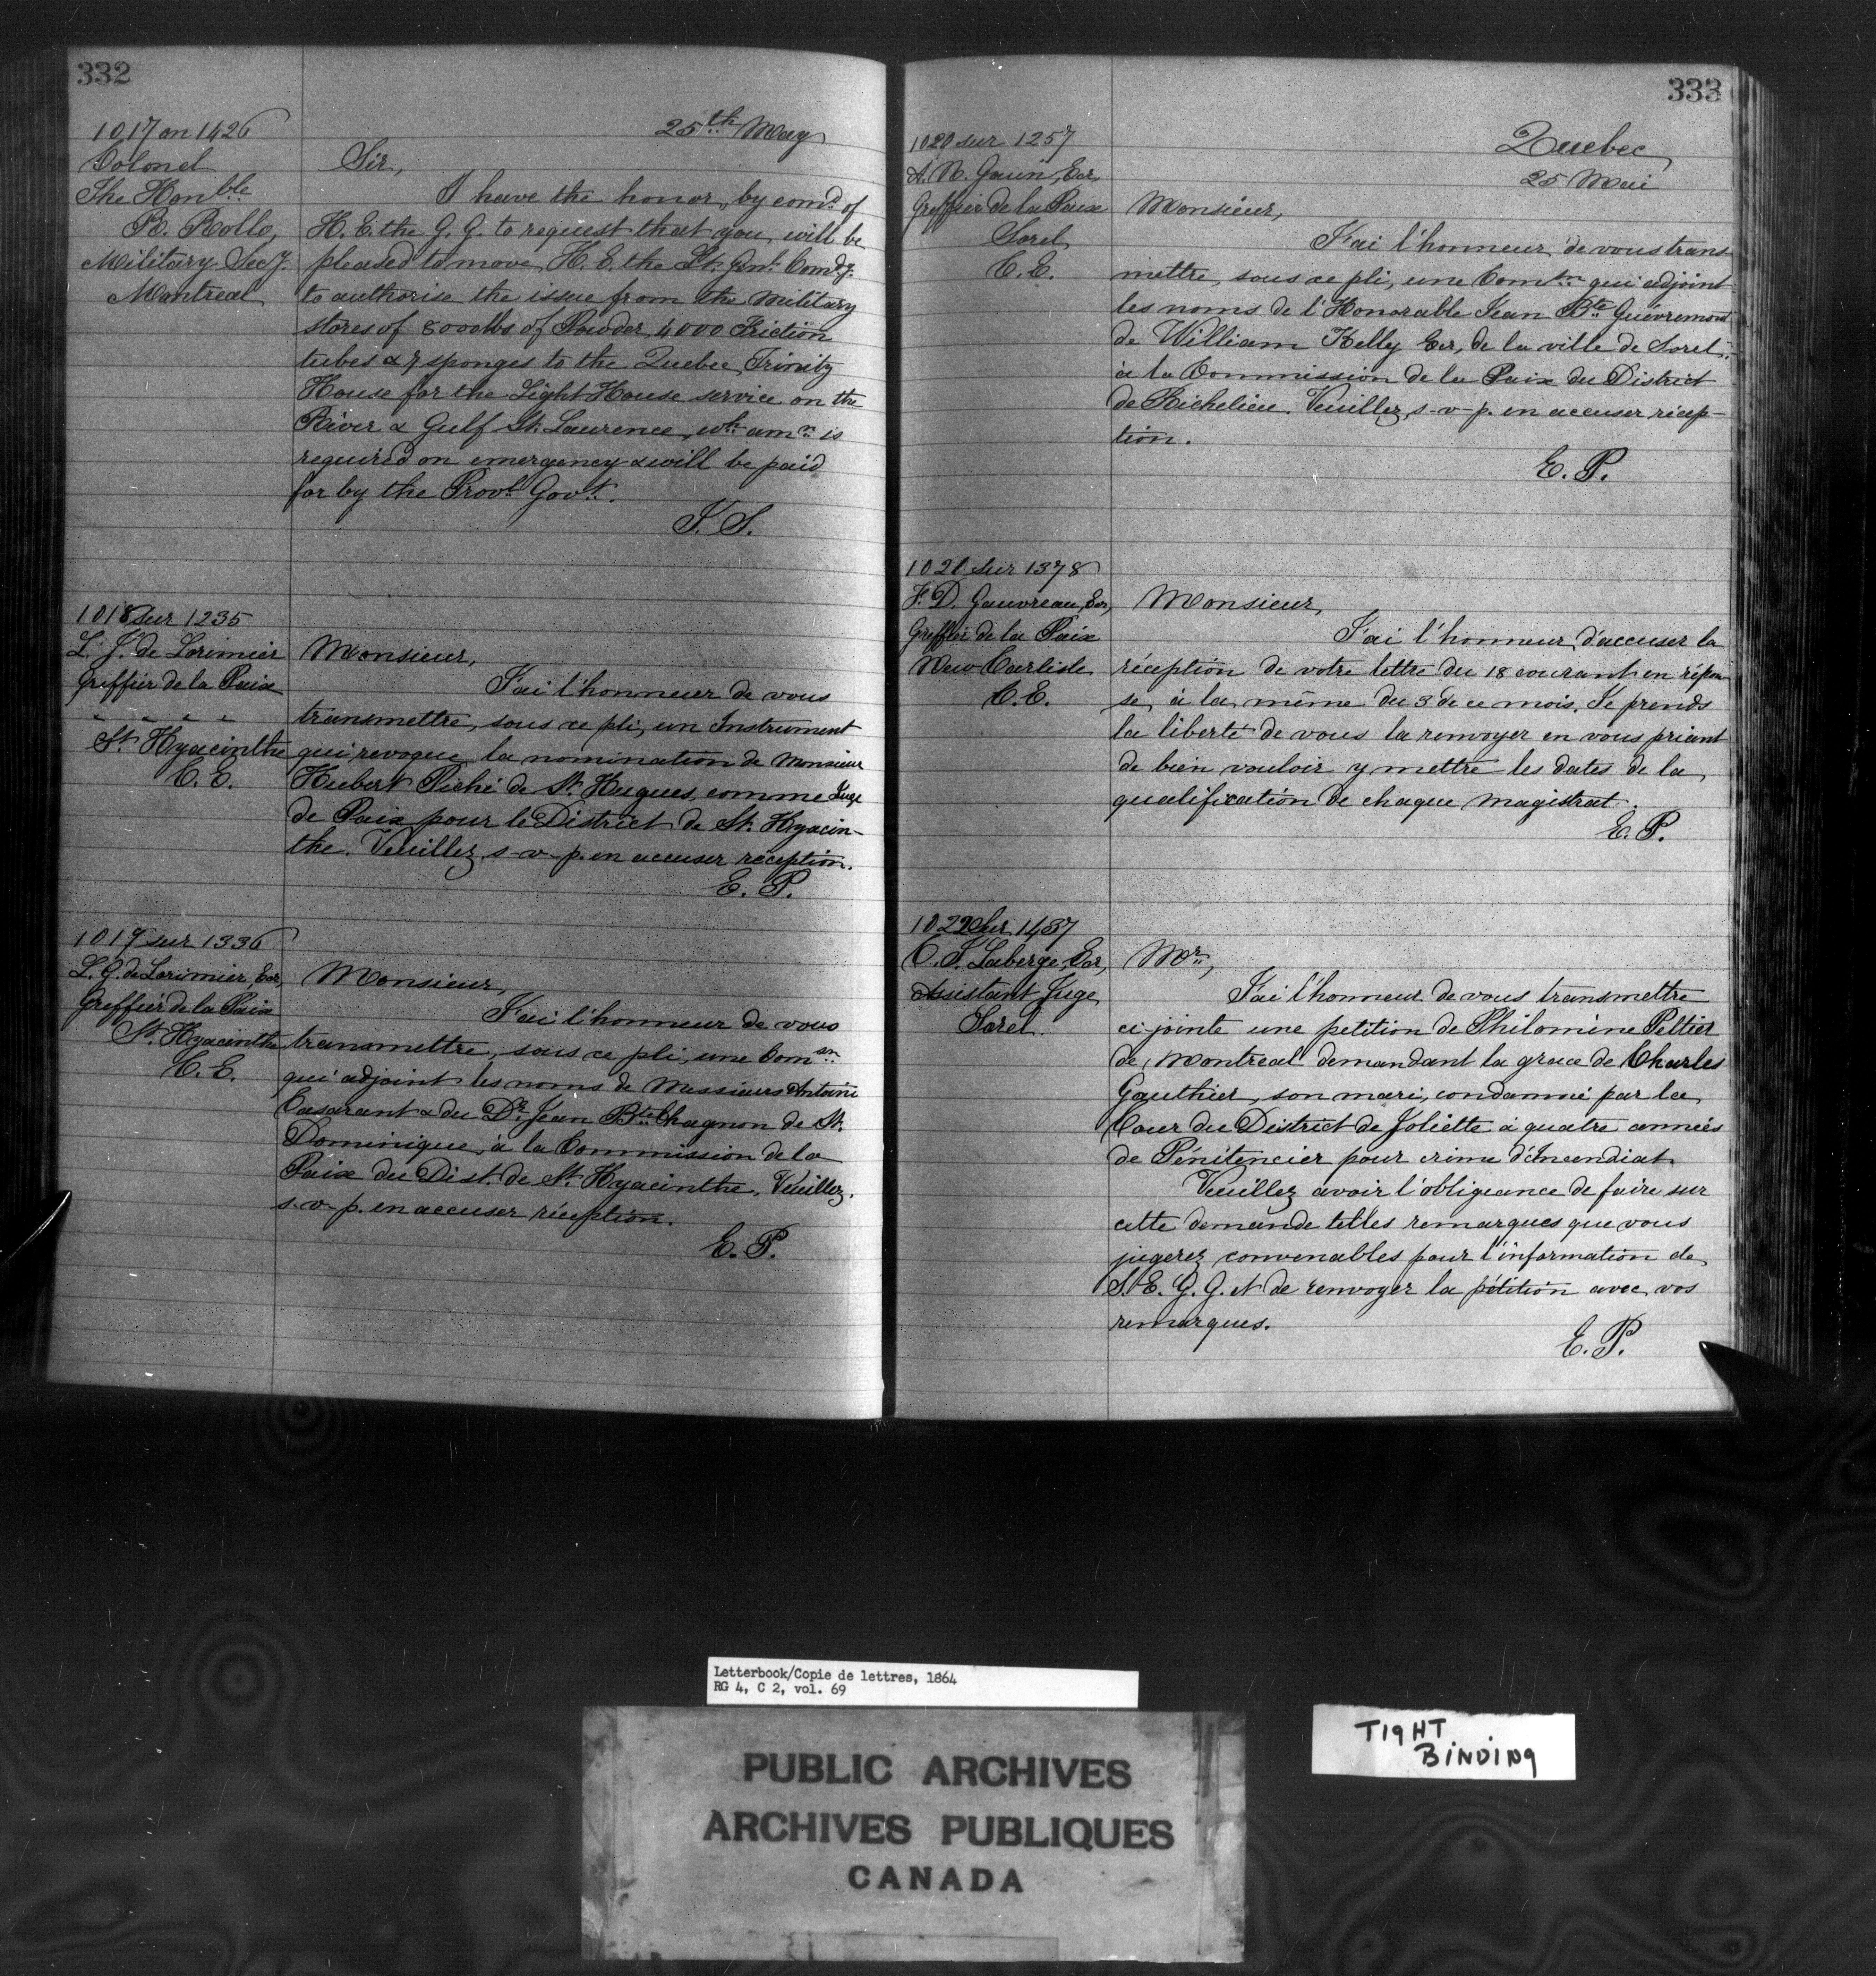 332
1017 on 1426
Colonel
The Honble
R. Rollo,
Military Secy.
Montreal
25th May
Sir,
I have the honor, by comd of
H. E. the G. G. to request that you will be
pleased to move H. E. the Lt. Genl. Comdg.
to authorise the issue from the Military
stores of 8000 lbs of Powder, 4000 Friction
tubes & 7 sponges to the Quebec Trinity
House for the Light House service on the
River & Gulf St. Laurence, wh. amn. is
required on emergency & will be paid
for by the Provl. Govt.
1018 sur 1235
L. G. de Lorimier
Greffier de la Paix
" " " "
St. Hyacinthe
C. E.
Monsieur,
J'ai l'honneur de vous
transmettre, sous ce pli, un Instrument
qui revoque la nomination de Monsieur
Hubert Piché de St. Hugues, comme Juge
de Paix pour le District de St. Hyacin-
the. Veuillez s-v-p. en accuser réception.
E. P.
1019 sur 1336
L. G. de Lorimier, Ecr,
Greffier de la Paix
St. Hyacinthe
C. E.
Monsieur,
J'ai l'honneur de vous
transmettre, sous ce pli, une Comsn.
qui adjoint les noms de Messieurs Antoine
Casavant & du Dr. Jean Bte Chagnon de St.
Dominique, à la Commission de la
Paix du Dist. de St. Hyacinthe. Veuillez,
s-v-p. en accuser réception.
E. P.
333
Quebec
25 Mai
1020 sur 1257
Ecr,
Greffier de la Paix
Sorel
C. E.
Monsieur,
J'ai l'honneur de vous trans
mettre, sous ce pli, une Comsn. qui adjoint
les noms de l'Honorable Jean Bte Guévremont
de William Kelly Ecr, de la ville de Sorel,
à la Commission de la Paix du District
de Richelieu. Veuillez, s-v-p. en accuser récep-
tion.
E. P.
1021 sur 1378
F. D. Gauvreau, Ecr,
Greffier de la Paix
New Carlisle
C. E.
Monsieur,
J'ai l'honneur d'accuser la
réception de votre lettre du 18 courant en répon
se, à la même du 3 de ce mois. Je prends
la liberté de vous la renvoyer en vous priant
de bien vouloir y mettre les dates de la
qualification de chaque magistrat.
E. P.
1022 sur 1437
Laberge, Ecr,
Assistant Juge
Sorel.
Mr.,
J'ai l'honneur de vous transmettre
ci-jointe une petition de Philomène Peltier
de Montreal demandant la grace de Charles
Gauthier, son mari, condamné par la
Cour du District de Joliette à quatre années
de Pénitencier pour crime d'Incendiat.
Veuillez avoir l'obligeance de faire sur
cette demande telles remarques que vous
jugerez convenables pour l'information de
S. E. G. G. et de renvoyer la pétition avec vos
remarques.
E. P.
Letterbook/Copie de lettres, 1864
RG 4, C 2, vol. 69
PUBLIC ARCHIVES
ARCHIVES PUBLIQUES
CANADA
TIGHT
BINDING